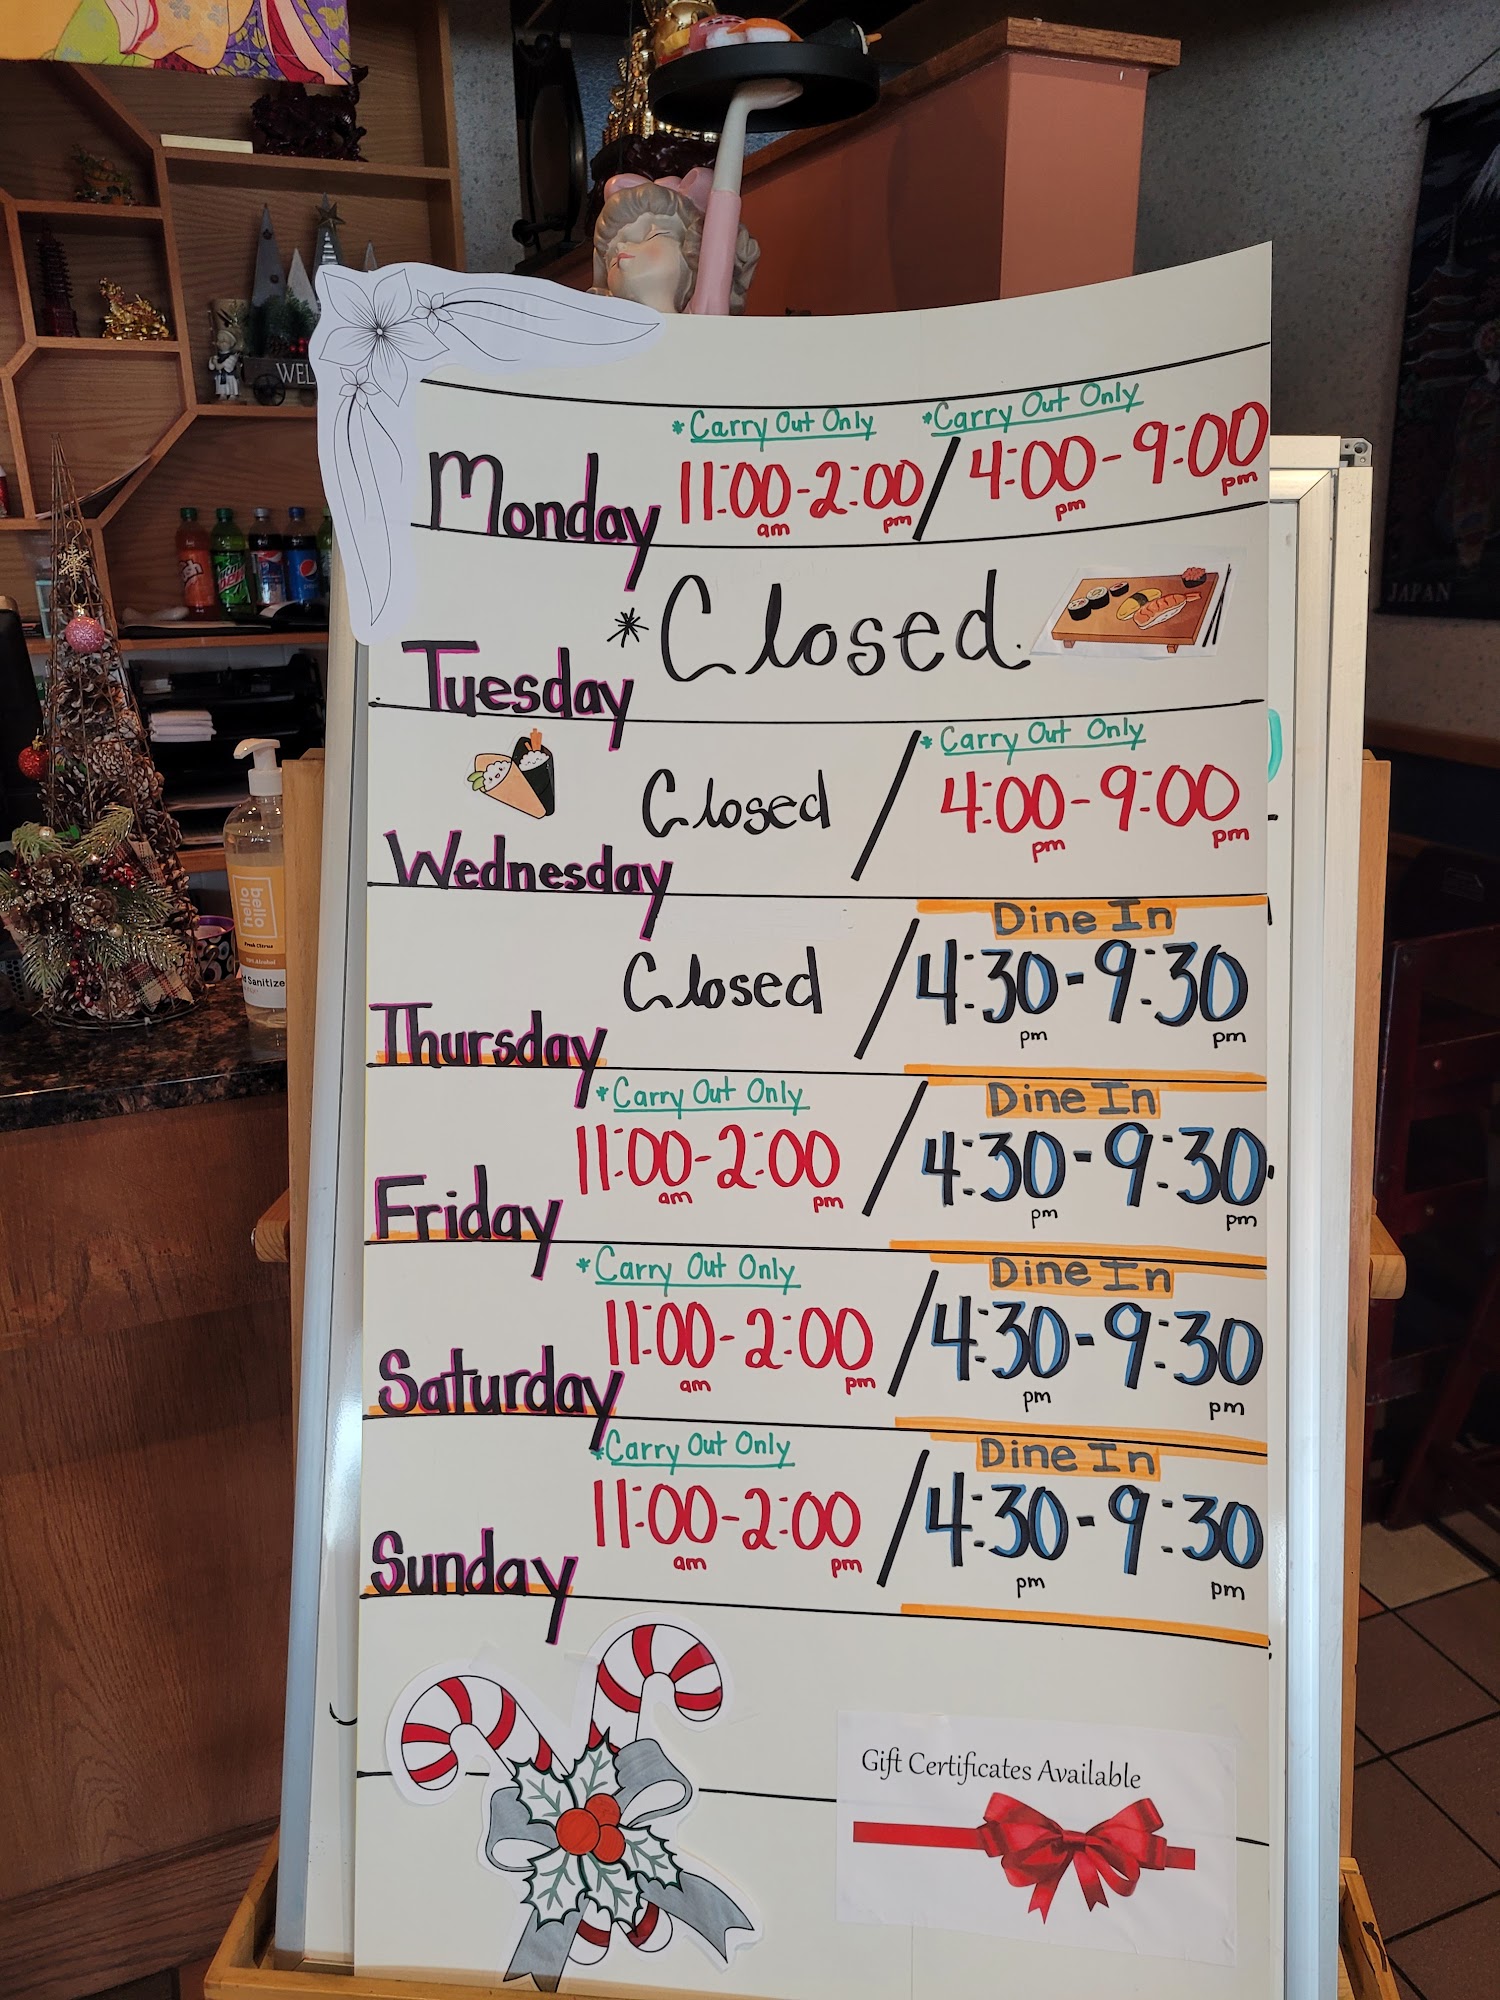 *Carry Out Only *Carry Out Only
Monday 11:00 am - 2:00 pm / 4:00 pm - 9:00 pm
Tuesday *Closed
*Carry Out Only
Wednesday Closed / 4:00 pm - 9:00 pm
Dine In
Thursday Closed / 4:30 pm - 9:30 pm
*Carry Out Only Dine In
Friday 11:00 am - 2:00 pm / 4:30 pm - 9:30 pm
*Carry Out Only Dine In
Saturday 11:00 am - 2:00 pm / 4:30 pm - 9:30 pm
*Carry Out Only Dine In
Sunday 11:00 am - 2:00 pm / 4:30 pm - 9:30 pm
Gift Certificates Available
WEL
JAPAN
hello
bello
Fresh Citrus
d Sanitize